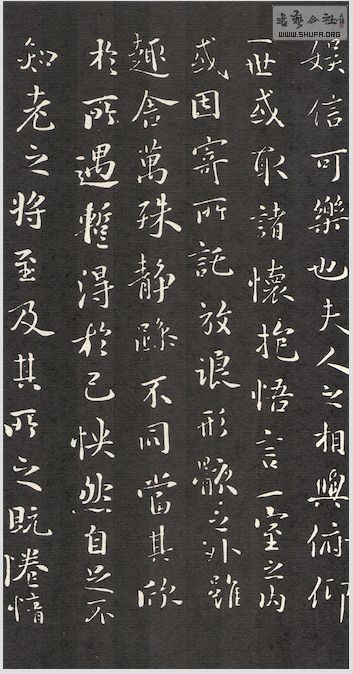 娱信可樂也夫人之相與俯仰
一世或取諸懷抱悟言一室之内
或因寄所託放浪形骸之外雖
趣舍萬殊静躁不同當其欣
於所遇蹔得於己怏然自足不
知老之将至及其所之既惓情
WWW.SHUFA.ORG